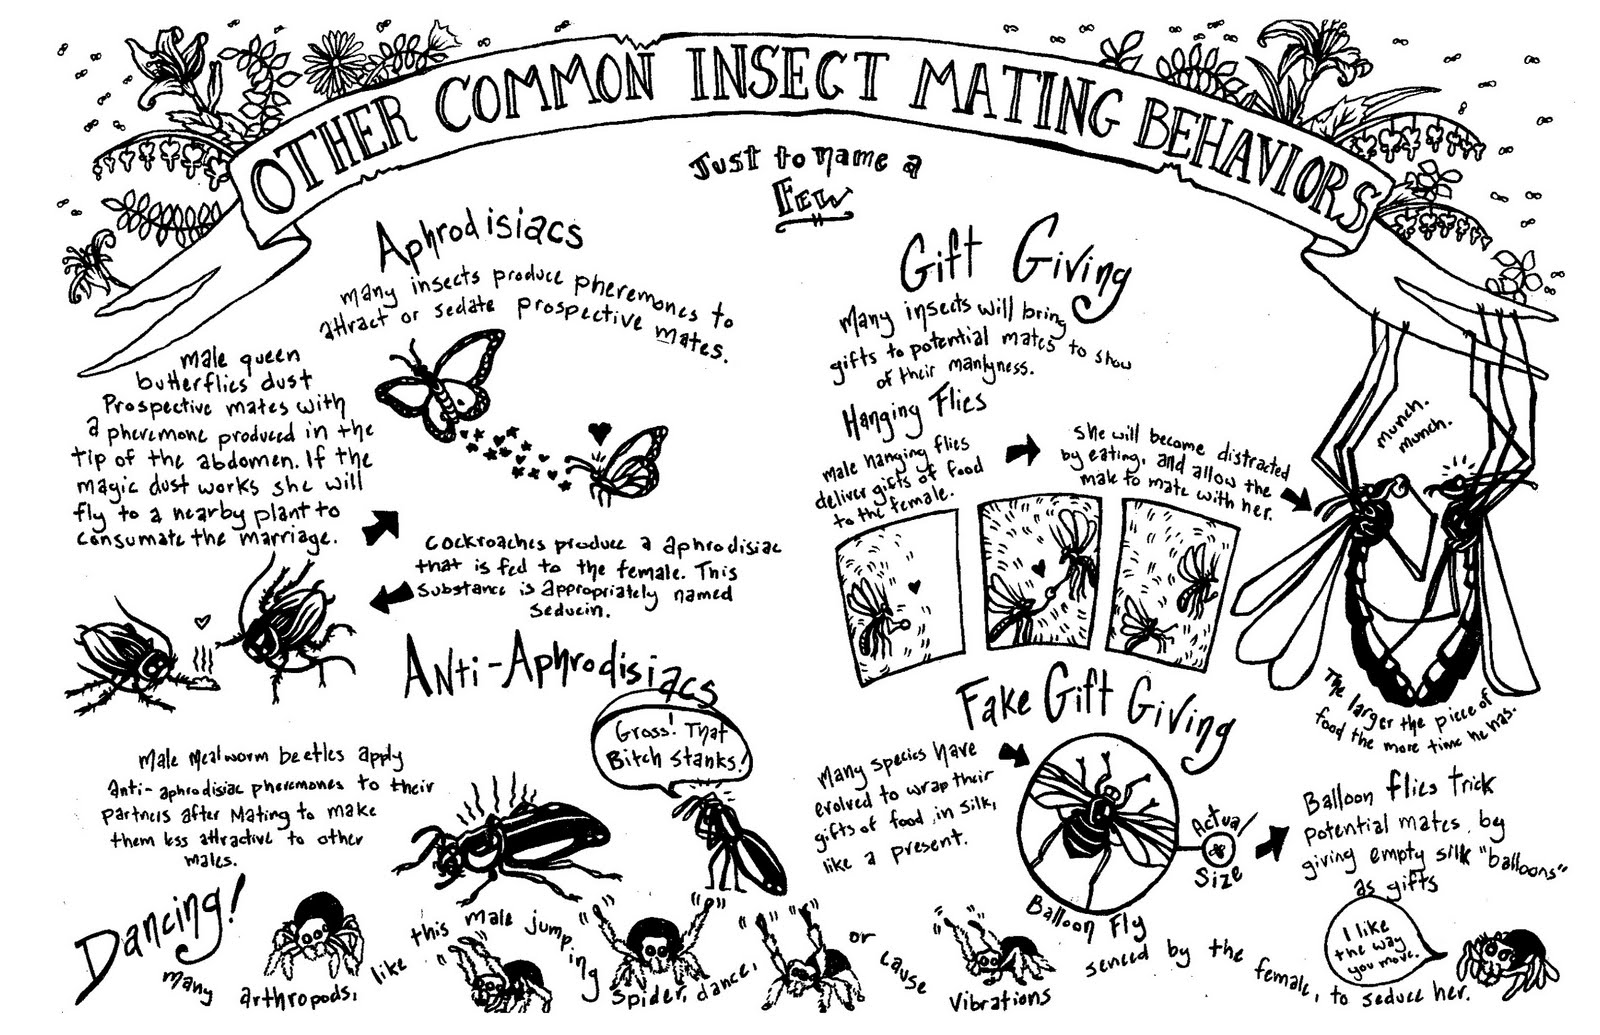 OTHER COMMON INSECT MATING BEHAVIORS
Just to name a
FEW
Aphrodisiacs
many insects produce pheremones to
attract or sedate prospective mates.
male queen
butterflies dust
Prospective mates with
a pheremone produced in the
tip of the abdomen. If the
magic dust works she will
fly to a nearby plant to
consumate the marriage.
Cockroaches produce a aphrodisiac
that is fed to the female. This
substance is appropriately named
Seducin.
Anti-Aphrodisiacs
Gross! That
Bitch Stanks!
Male Mealworm beetles apply
Anti-aphrodisiac pheremones to their
partners after Mating to make
them less attractive to other
males.
Gift Giving
Many insects will bring
gifts to potential mates to show
of their manlyness.
Hanging Flies
male hanging flies
deliver gifts of food
to the female.
She will become distracted
by eating, and allow the
male to mate with her.
munch.
munch.
The larger the piece of
food the more time he has.
Fake Gift Giving
Many species have
evolved to wrap their
gifts of food in silk,
like a present.
Actual
Size
Balloon Fly
Balloon flies trick
potential mates by
giving empty silk "balloons"
as gifts
Dancing!
many arthropods, like this male jumping spider, dance, or cause vibrations senced by the female, to seduce her.
I like
the way
you move.